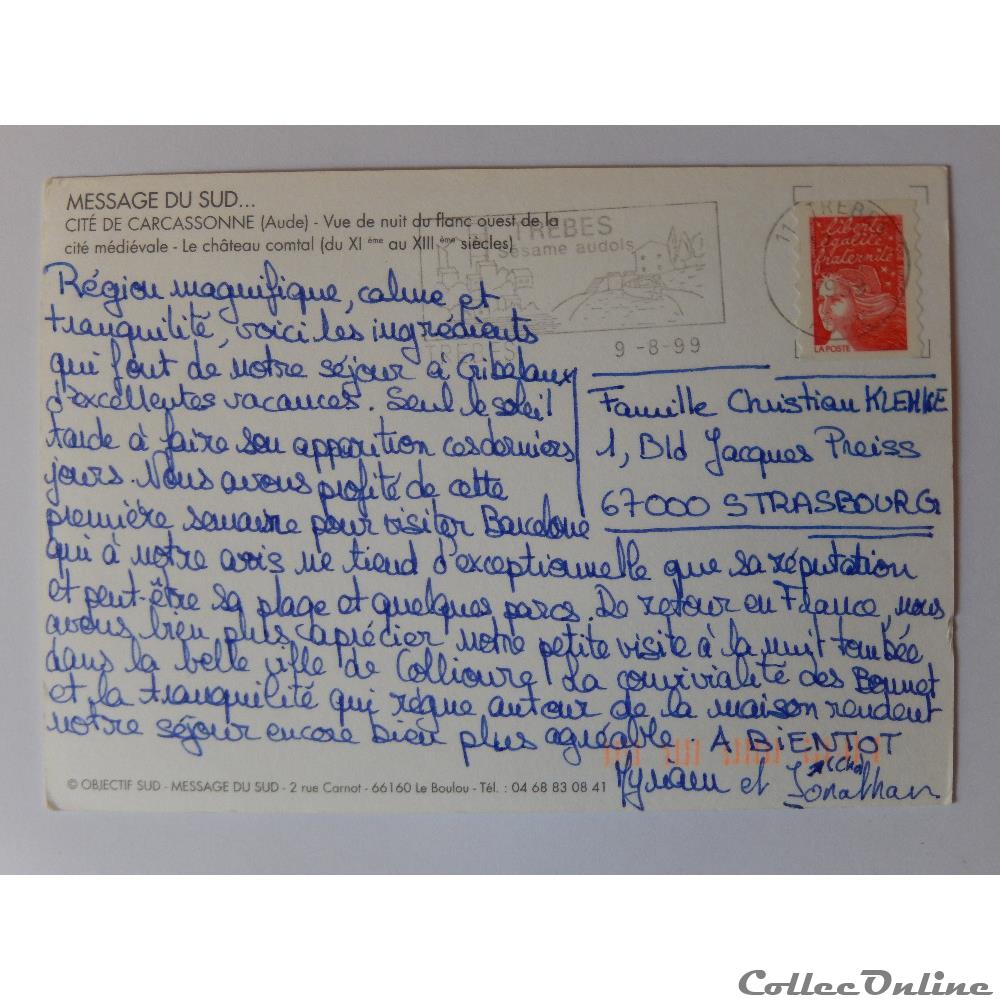 MESSAGE DU SUD...
CITÉ DE CARCASSONNE (Aude) - Vue de nuit du flanc ouest de la
cité médiévale - Le château comtal (du XI ème au XIII ème siècles)
TREBES
Sésame audois
TREBES
9-8-99
11 TREBES
liberté
égalité
fraternité
LA POSTE
Région magnifique, calme et
tranquilité, voici les ingrédients
qui font de notre séjour à Gribalaux
d'excellentes vacances. Seul le soleil
tarde à faire son apparition ces derniers
jours. Nous avons profité de cette
première semaine pour visiter Barcelone
qui à notre avis ne tient d'exceptionnelle que sa réputation
et peut-être sa plage et quelques parcs. De retour en France, nous
avons bien plus aprécier notre petite visite à la nuit tombée
dans la belle ville de Collioure. La convivialité des Bonnet
et la tranquilité qui règne autour de la maison rendent
notre séjour encore bien plus agréable. A BIENTOT
Myriam et Jonathan
Famille Christian KLEHKE
1, Bld Jacques Preiss
67000 STRASBOURG
© OBJECTIF SUD - MESSAGE DU SUD - 2 rue Carnot - 66160 Le Boulou - Tél. : 04 68 83 08 41
CollecOnline